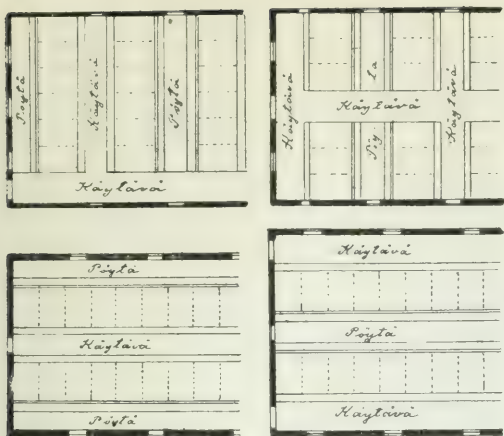 Pöytä
Käytävä
Pöytä
Käytävä
Käytävä
Pöy
tä
Käytävä
Käytävä
Pöytä
Käytävä
Pöytä
Käytävä
Pöytä
Käytävä